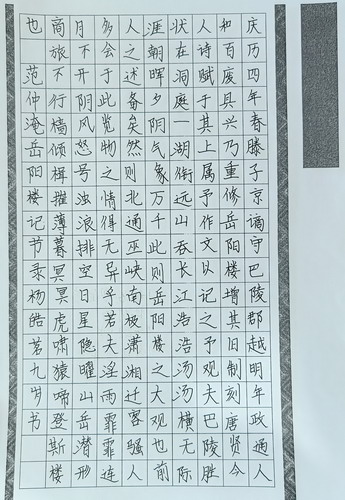 庆历四年春滕子京谪守巴陵郡越明年政通人
和百废具兴乃重修岳阳楼增其旧制刻唐贤今
人诗赋于其上属予作文以记之予观夫巴陵胜
状在洞庭一湖衔远山吞长江浩浩汤汤横无际
涯朝晖夕阴气象万千此则岳阳楼之大观也前
人之述备矣然则北通巫峡南极潇湘迁客骚人
多会于此览物之情得无异乎若夫淫雨霏霏连
月不开阴风怒号浊浪排空日星隐曜山岳潜形
商旅不行樯倾楫摧薄暮冥冥虎啸猿啼登斯楼
也 范仲淹岳阳楼记节录杨皓茗九岁书